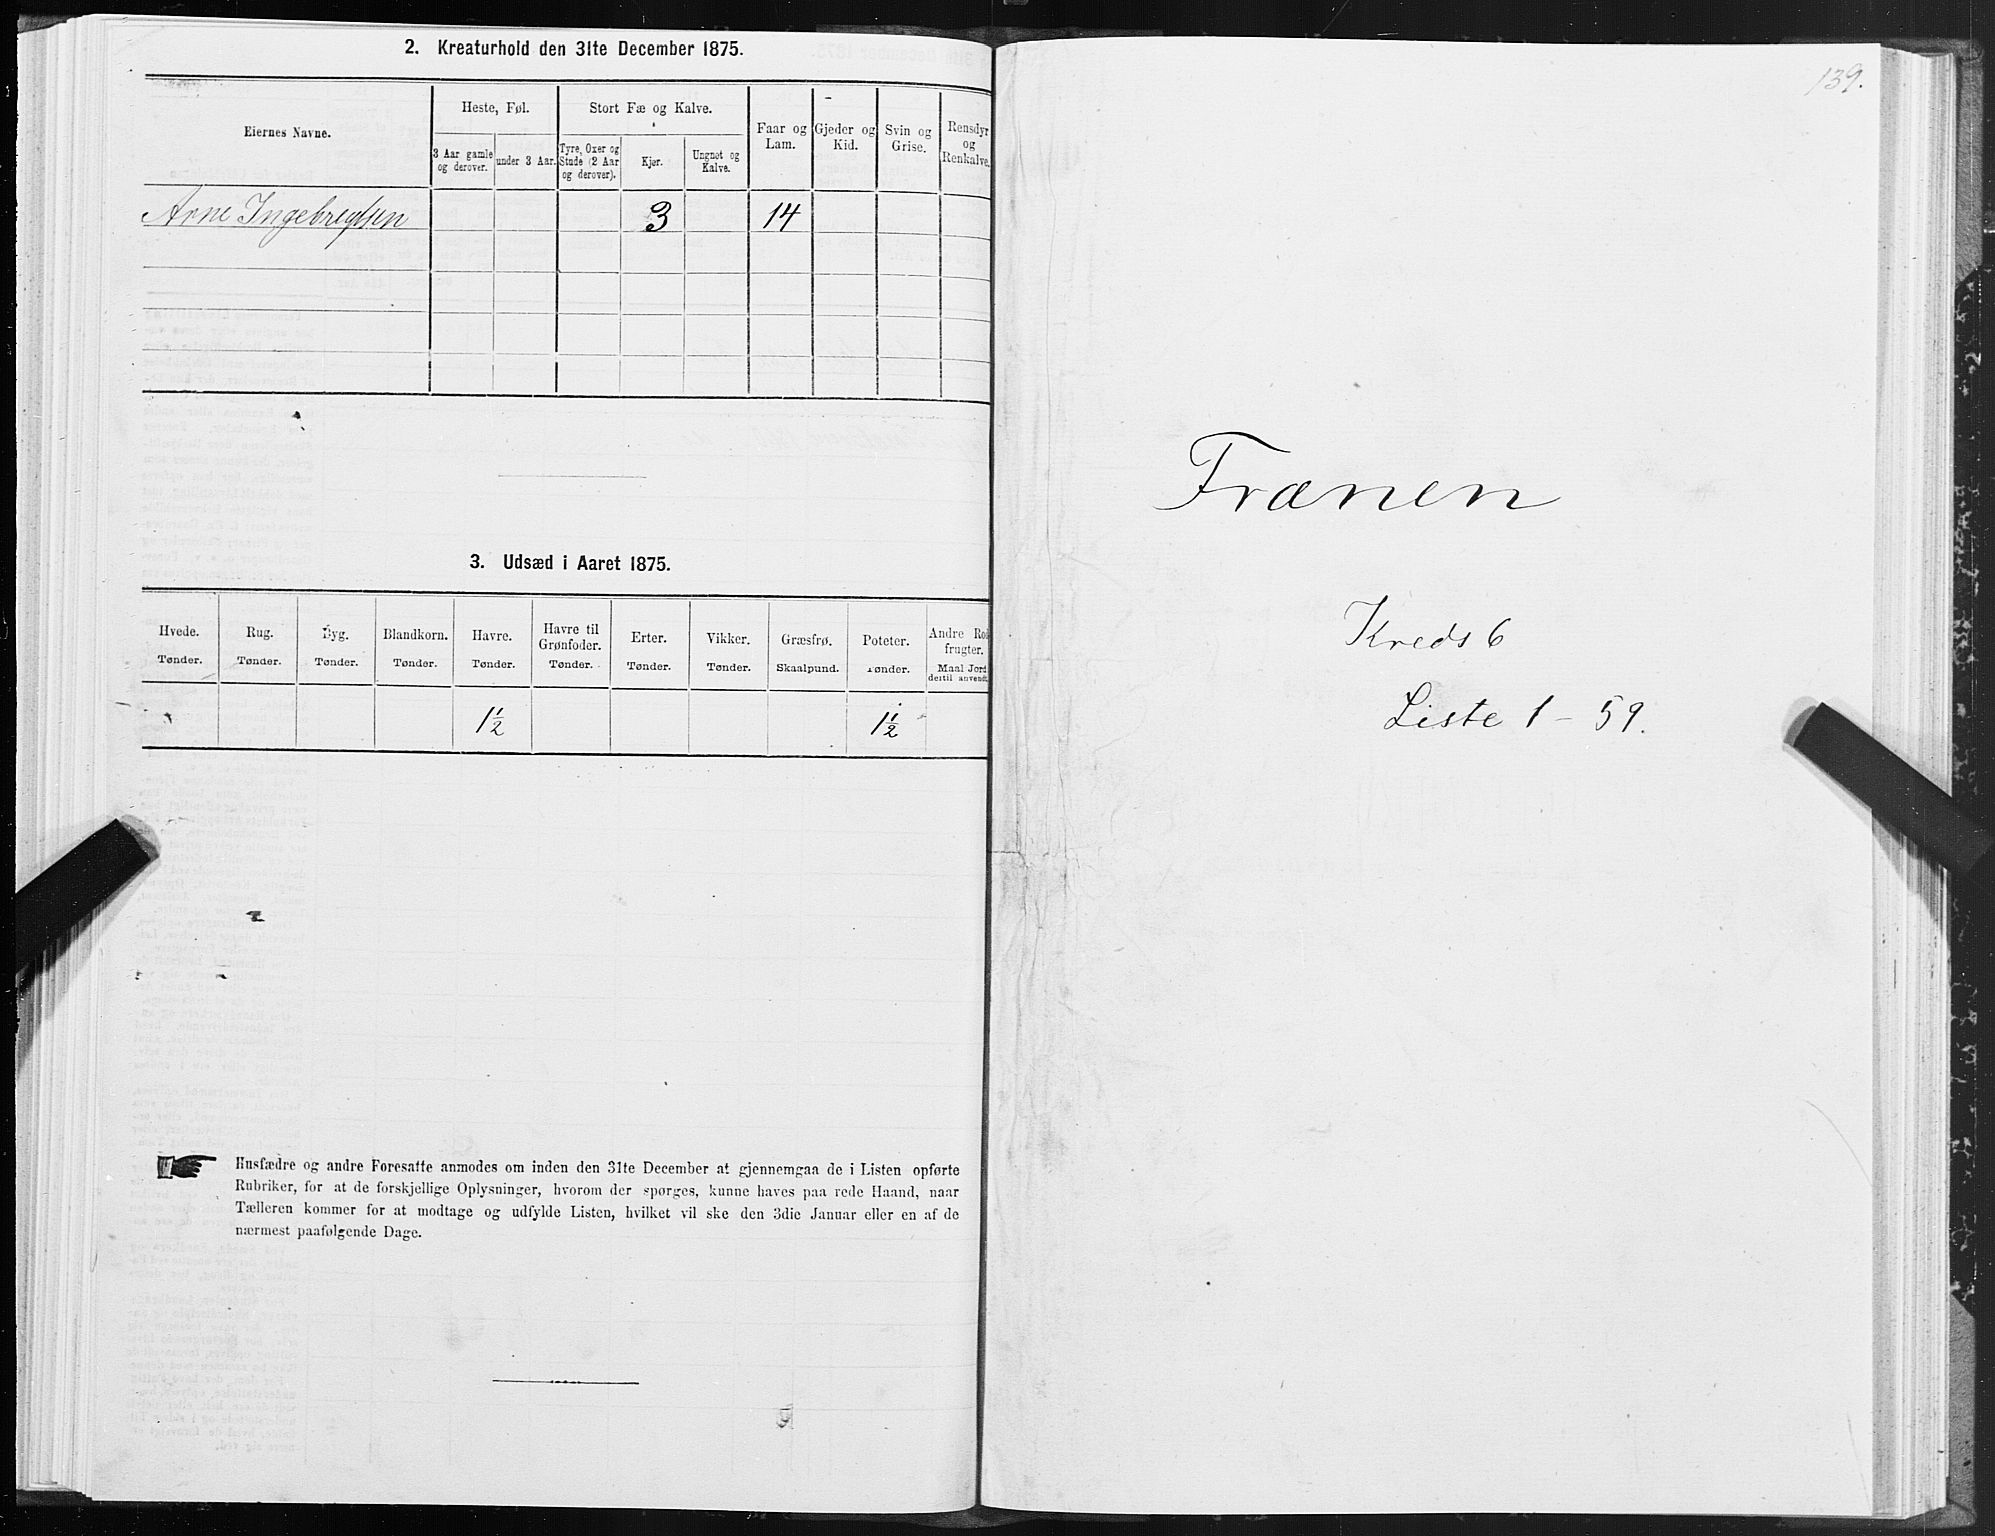 2. Kreaturhold den 31te December 1875.
Eiernes Navne.
Heste, Føl.
Stort Fæ og Kalve.
Faar og Lam.
Gjeder og Kid.
Svin og Grise.
Rensdyr og Renkalve.
3 Aar gamle og derover.
under 3 Aar.
Tyre, Oxer og Stude (2 Aar og derover).
Kjør.
Ungnøt og Kalve.
Arne Ingebregtsen 3 14
3. Udsæd i Aaret 1875.
Hvede. Rug. Byg. Blandkorn. Havre. Havre til Grønfoder. Erter. Vikker. Græsfrø. Poteter. Andre Rodfrugter.
Tønder. Tønder. Tønder. Tønder. Tønder. Tønder. Tønder. Tønder. Skaalpund. Tønder. Maal Jord dertil anvendt.
1½ 1½
Husfædre og andre Foresatte anmodes om inden den 31te December at gjennemgaa de i Listen opførte
Rubriker, for at de forskjellige Oplysninger, hvorom der spørges, kunne haves paa rede Haand, naar
Tælleren kommer for at modtage og udfylde Listen, hvilket vil ske den 3die Januar eller en af de
nærmest paafølgende Dage.
139.
Frænen
Kreds 6
Liste 1 - 59.